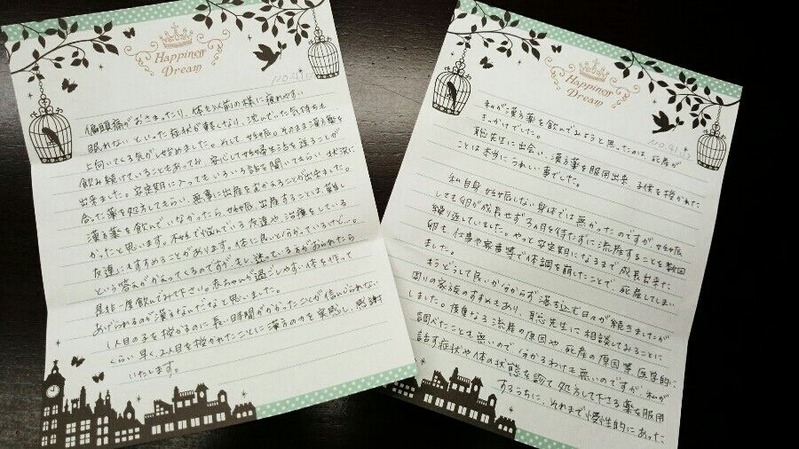 Happiness
Dream
偏頭痛がおさまったり、体も以前の様に疲れやすい
眠れない といった症状が軽くなり、沈んでいた気持ちも
上向いてくる気がし始めました。そして妊娠。そのまま漢方薬を
飲み続けていることもあってか、安心して妊婦生活を送ることが
出来ました。安定期に入ってもいろいろ話を聞いてもらい 状況に
合った薬を処方してもらい、無事に出産をむかえることが出来ました。
漢方薬を飲んでいなかったら、妊娠、出産することは難し
かったと思います。不妊で悩んでいる友達や、治療をしている
友達にもすすめることがあります。体に良いと分かっているけど…。
という答えがかえってくるのですが、もし迷っている方がおられたら
是非一度飲んでみて下さい。赤ちゃんが過ごしやすい体を作って
あげられるのが漢方なんだなと思いました。
1人目の子を授かるのに長い時間がかかったことが信じられない
くらい早く2人目を授かれたことに漢方の力を実感し、感謝
いたします。
Happiness
Dream
私が漢方薬を飲んでみようと思ったのは、死産が
きっかけでした。
聡先生に出会い、漢方薬を服用出来、子供を授かれた
ことは本当にうれしい事でした。
私自身、妊娠しない身体では無かったのですが、妊娠
しても卵が成長せず3ヵ月を待たずに流産することを数回
繰り返していました。やっと安定期になるまで成長出来た
卵も、仕事や家事等で体調を崩したことで、死産してしまい
ました。
もうどうして良いか分からず落ち込む日々が続きましたが
周りの家族のすすめもあり、聡先生に相談してみることに
しました。度重なる流産の原因や、死産の原因等、医学的に
調べたことも無いので、分かるわけも無いのですが、私が
話す症状や体の状態を診て処方して下さる薬を服用
するうちに、それまで慢性的にあった